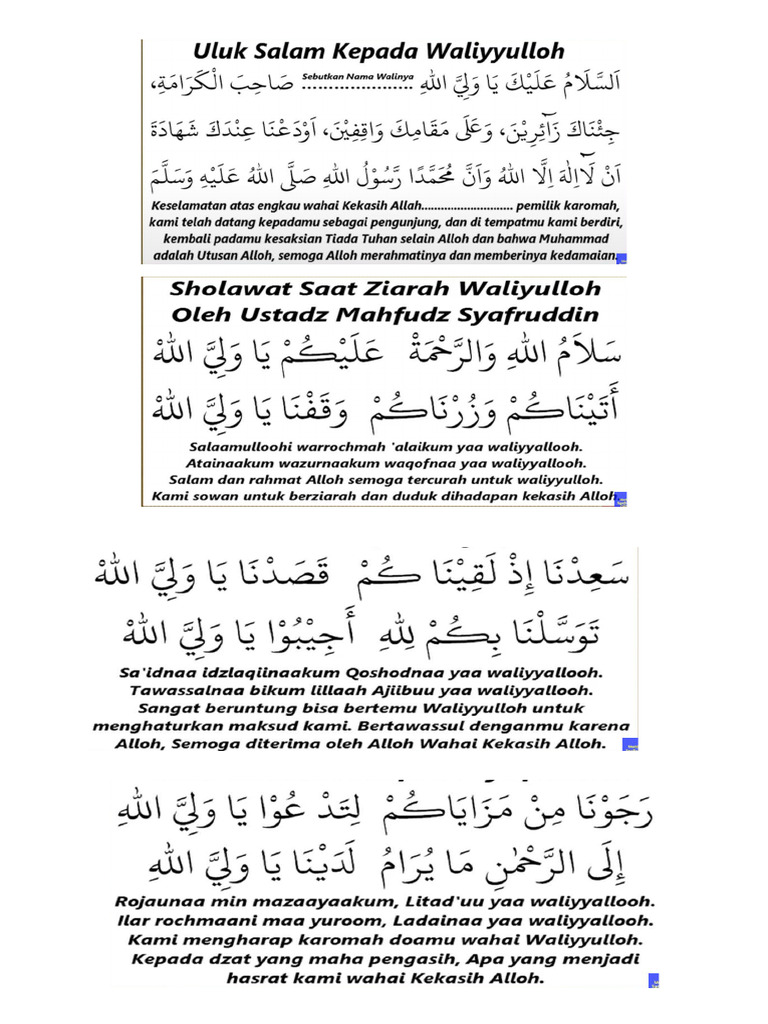 Uluk Salam Kepada Waliyyulloh
اَلسَّلَامُ عَلَيْكَ يَا وَلِيَّ اللهِ ...................... صَاحِبَ الْكَرَامَةِ،
Sebutkan Nama Walinya
جِئْنَاكَ زَآئِرِيْنَ، وَعَلَى مَقَامِكَ وَاقِفِيْنَ، اَوْدَعْنَا عِنْدَكَ شَهَادَةَ
اَنْ لَآاِلٰهَ اِلَّا اللهُ وَاَنَّ مُحَمَّدًا رَّسُوْلُ اللهِ صَلَّى اللهُ عَلَيْهِ وَسَلَّمَ
Keselamatan atas engkau wahai Kekasih Allah............................ pemilik karomah,
kami telah datang kepadamu sebagai pengunjung, dan di tempatmu kami berdiri,
kembali padamu kesaksian Tiada Tuhan selain Alloh dan bahwa Muhammad
adalah Utusan Alloh, semoga Alloh merahmatinya dan memberinya kedamaian.
Sholawat Saat Ziarah Waliyulloh
Oleh Ustadz Mahfudz Syafruddin
سَلاَمُ اللهِ وَالرَّحْمَةْ عَلَيْكُمْ يَا وَلِيَّ اللهْ
أَتَيْنَاكُمْ وَزُرْنَاكُمْ وَقَفْنَا يَا وَلِيَّ اللهْ
Salaamulloohi warrochmah `alaikum yaa waliyyallooh.
Atainaakum wazurnaakum waqofnaa yaa waliyyallooh.
Salam dan rahmat Alloh semoga tercurah untuk waliyyulloh.
Kami sowan untuk berziarah dan duduk dihadapan kekasih Alloh.
سَعِدْنَا إِذْ لَقِيْنَا كُمْ قَصَدْنَا يَا وَلِيَّ اللهْ
تَوَسَّلْنَا بِكُمْ لِلهِ أَجِيْبُوْا يَا وَلِيَّ اللهْ
Sa`idnaa idzlaqiinaakum Qoshodnaa yaa waliyyallooh.
Tawassalnaa bikum lillaah Ajiibuu yaa waliyyallooh.
Sangat beruntung bisa bertemu Waliyyulloh untuk
menghaturkan maksud kami. Bertawassul denganmu karena
Alloh, Semoga diterima oleh Alloh Wahai Kekasih Alloh.
رَجَوْنَا مِنْ مَزَايَاكُمْ لِتَدْ عُوْا يَا وَلِيَّ اللهِ
إِلَى الرَّحْمٰنِ مَا يُرَامُ لَدَيْنَا يَا وَلِيَّ اللهِ
Rojaunaa min mazaayaakum, Litad`uu yaa waliyyallooh.
Ilar rochmaani maa yuroom, Ladainaa yaa waliyyallooh.
Kami mengharap karomah doamu wahai Waliyyulloh.
Kepada dzat yang maha pengasih, Apa yang menjadi
hasrat kami wahai Kekasih Alloh.